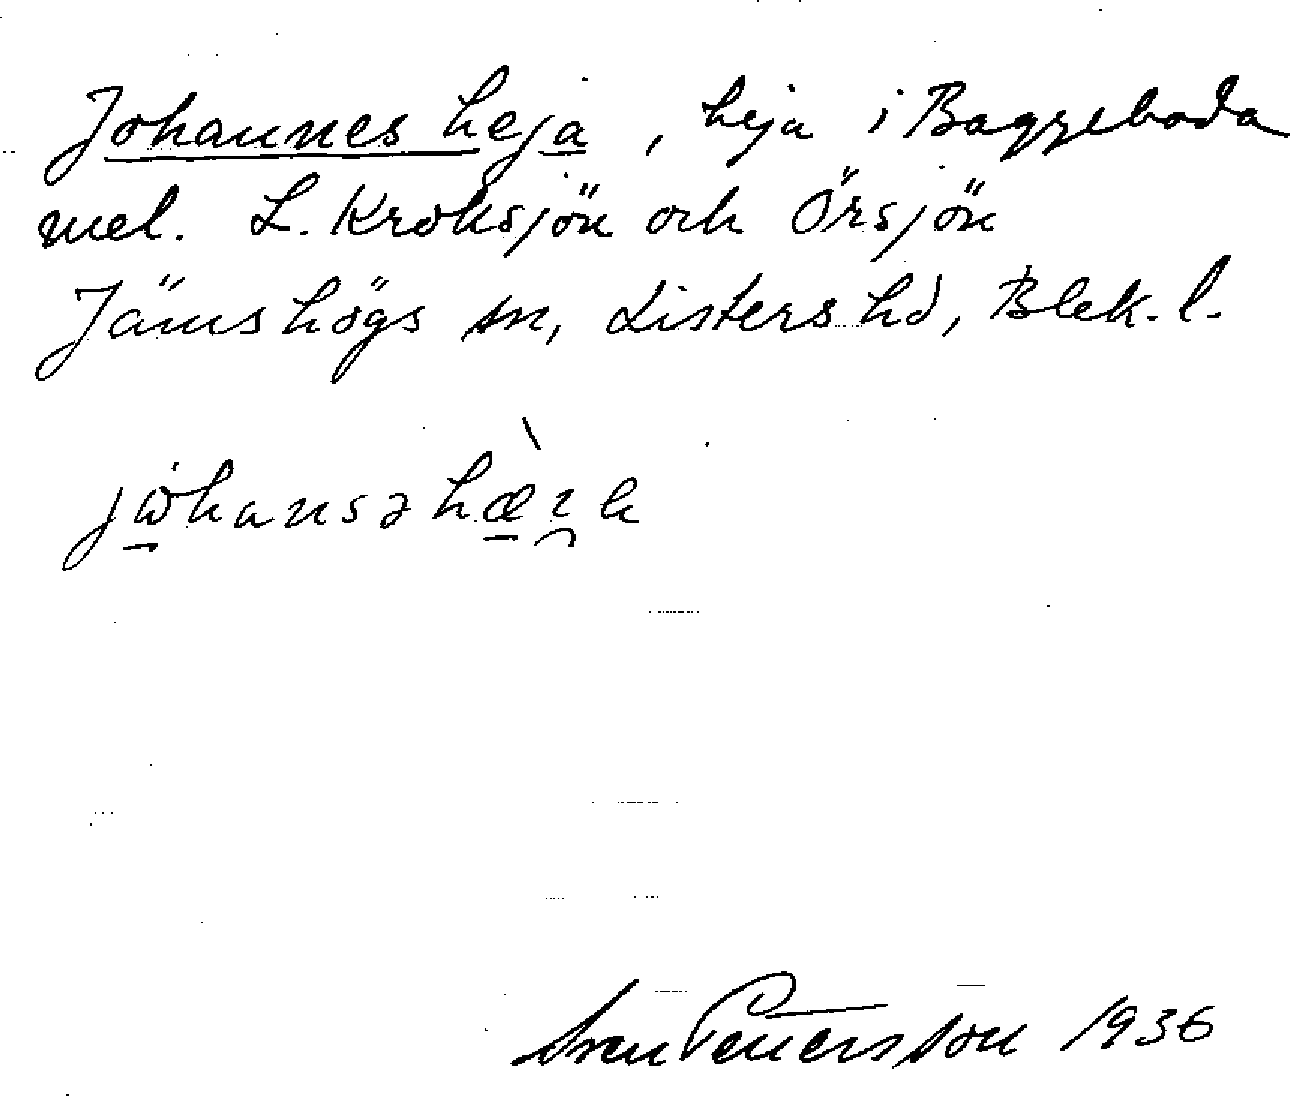 Johannes heja, heja i Baggeboda
mel. L. Kroksjön och Örsjön
Jämshögs sn, Listers hd, Blek. l.
Sven Pettersson 1936